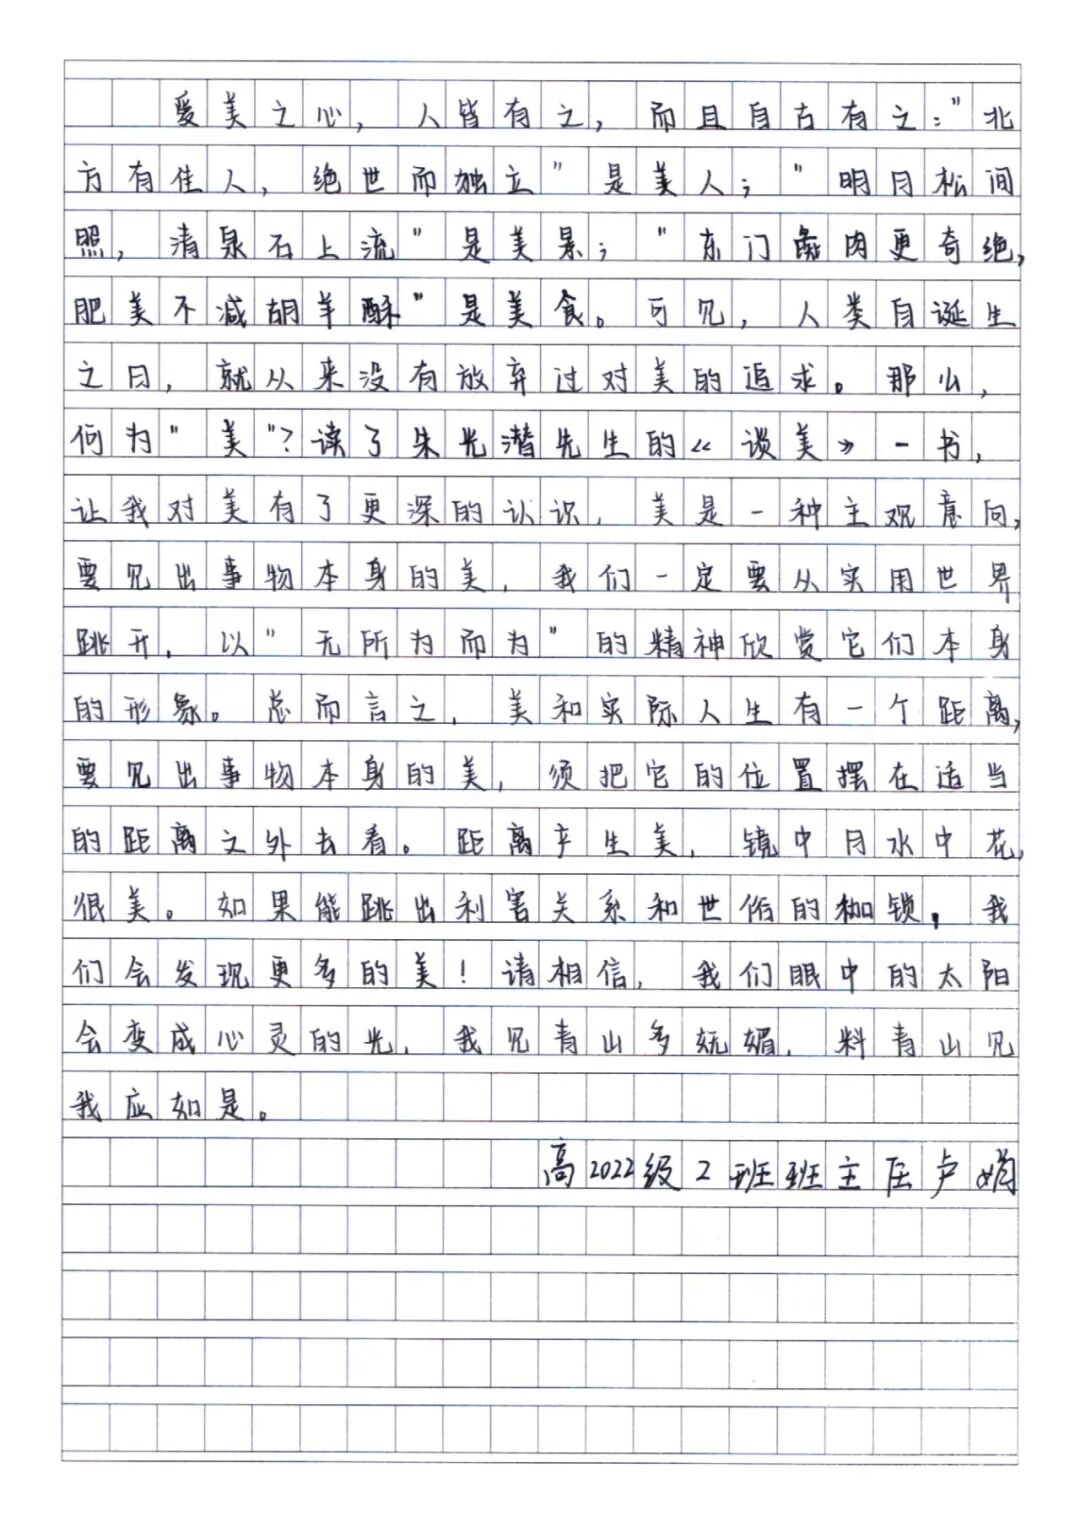 爱美之心，人皆有之，而且自古有之："北
方有佳人，绝世而独立"是美人；"明月松间
照，清泉石上流"是美景；"东门彘肉更奇绝，
肥美不减胡羊酥"是美食。可见，人类自诞生
之日，就从来没有放弃过对美的追求。那么，
何为"美"？读了朱光潜先生的《谈美》一书，
让我对美有了更深的认识，美是一种主观意向，
要见出事物本身的美，我们一定要从实用世界
跳开，以"无所为而为"的精神欣赏它们本身
的形象。总而言之，美和实际人生有一个距离，
要见出事物本身的美，须把它的位置摆在适当
的距离之外去看。距离产生美，镜中月水中花，
很美。如果能跳出利害关系和世俗的枷锁，我
们会发现更多的美！请相信，我们眼中的太阳
会变成心灵的光，我见青山多妩媚，料青山见
我应如是。
高2022级2班班主任卢娟